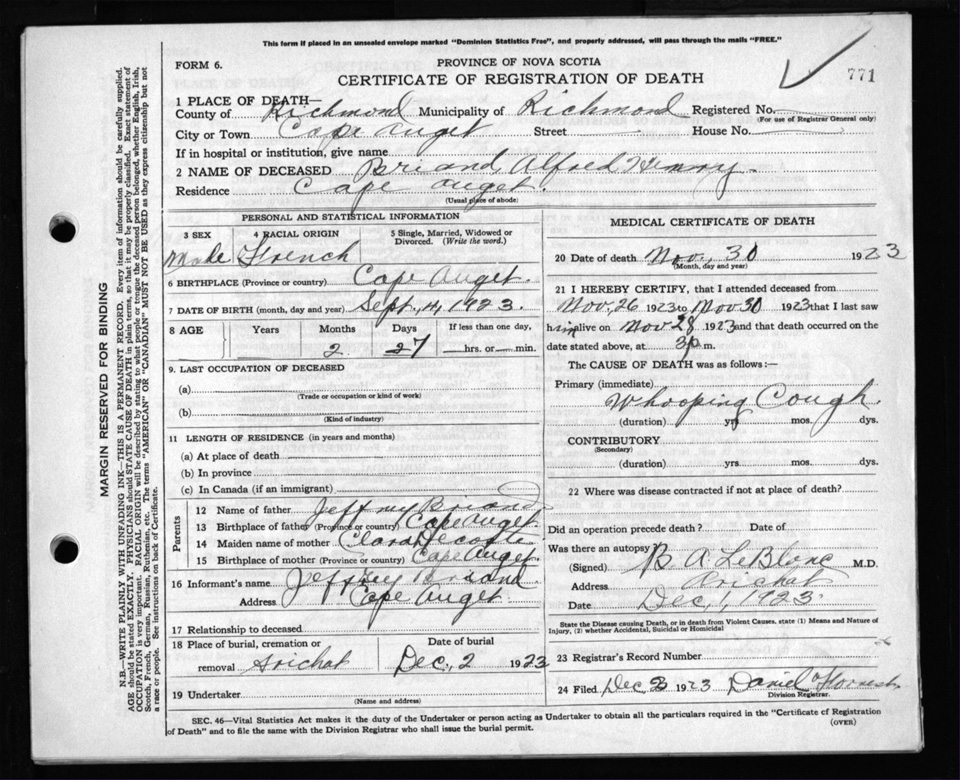 This form if placed in an unsealed envelope marked "Dominion Statistics Free", and properly addressed, will pass through the mails "FREE."
FORM 6.
PROVINCE OF NOVA SCOTIA
CERTIFICATE OF REGISTRATION OF DEATH
771
1 PLACE OF DEATH—
County of Richmond Municipality of Richmond Registered No.
(For use of Registrar General only)
City or Town Cape Auget Street House No.
If in hospital or institution, give name
2 NAME OF DECEASED Briand Alfred Henry
Residence Cape Auget
(Usual place of abode)
PERSONAL AND STATISTICAL INFORMATION
3 SEX 4 RACIAL ORIGIN 5 Single, Married, Widowed or Divorced. (Write the word.)
Male French
6 BIRTHPLACE (Province or country) Cape Auget.
7 DATE OF BIRTH (month, day and year) Sept, 4, 1923.
8 AGE Years Months Days If less than one day,
2 27 hrs. or min.
9. LAST OCCUPATION OF DECEASED
(a)
(Trade or occupation or kind of work)
(b)
(Kind of industry)
11 LENGTH OF RESIDENCE (in years and months)
(a) At place of death
(b) In province
(c) In Canada (if an immigrant)
Parents
12 Name of father Jeffrey Briand
13 Birthplace of father (Province or country) Cape Auget.
14 Maiden name of mother Clara Decoste
15 Birthplace of mother (Province or country) Cape Auget
16 Informant's name Jeffrey Briand.
Address Cape Auget.
17 Relationship to deceased
18 Place of burial, cremation or removal Arichat Date of burial Dec, 2 1923
19 Undertaker
(Name and address)
MEDICAL CERTIFICATE OF DEATH
20 Date of death Nov, 30 1923
(Month, day and year)
21 I HEREBY CERTIFY, that I attended deceased from
Nov, 26 1923 to Nov 30 1923 that I last saw
him alive on Nov 28 1923 and that death occurred on the
date stated above, at 3 p. m.
The CAUSE OF DEATH was as follows:—
Primary (immediate)
Whooping Cough.
(duration) yrs mos. dys.
CONTRIBUTORY
(Secondary)
(duration) yrs mos. dys.
22 Where was disease contracted if not at place of death?
Did an operation precede death? Date of
Was there an autopsy
(Signed) B. A. LeBlanc M.D.
Address Arichat
Date Dec, 1, 1923
State the Disease causing Death, or in death from Violent Causes. state (1) Means and Nature of Injury, (2) whether Accidental, Suicidal or Homicidal
23 Registrar's Record Number
24 Filed Dec 3 1923 Daniel
Division Registrar.
SEC. 46—Vital Statistics Act makes it the duty of the Undertaker or person acting as Undertaker to obtain all the particulars required in the "Certificate of Registration
of Death" and to file the same with the Division Registrar who shall issue the burial permit.
(OVER)
MARGIN RESERVED FOR BINDING
N.B.—WRITE PLAINLY WITH UNFADING INK—THIS IS A PERMANENT RECORD. Every item of information should be carefully supplied.
AGE should be stated EXACTLY. PHYSICIANS should STATE CAUSE OF DEATH in plain terms, so that it may be properly classified. Exact statement of
OCCUPATION is very important. RACIAL ORIGIN will be described by stating to what people or tongue the deceased person belonged, whether English, Irish,
Scotch, French, German, Russian, Ruthenian, etc. The terms "AMERICAN" OR "CANADIAN" MUST NOT BE USED as they express citizenship but not
a race or people. See instructions on back of Certificate.